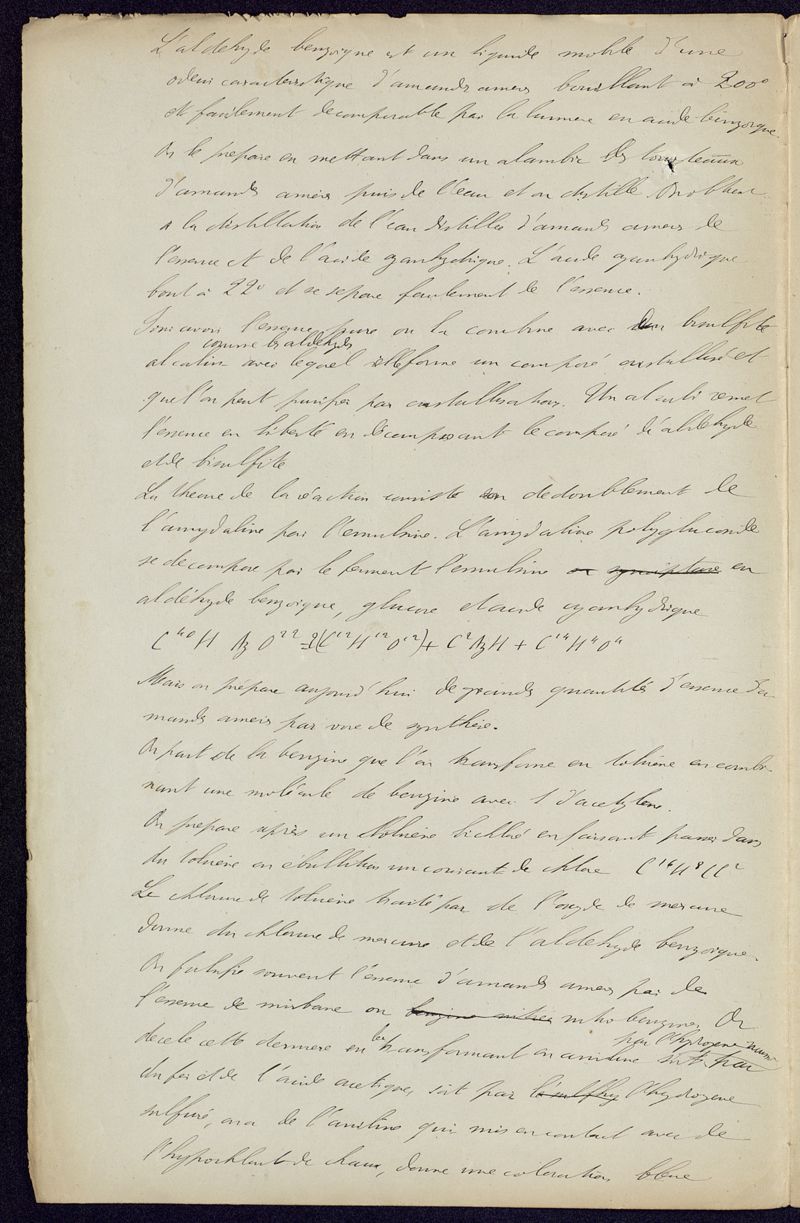 L'aldehyde benzoïque est un liquide mobile d'une
odeur caracteristique d'amandes ameres bouillant à 200°
et facilement decomposable par la lumiere en acide benzoique.
On le prepare en mettant dans un alambic des tourteaux
d'amandes amères puis de l'eau et on distille. On obtient
a la distillation de l'eau distillée d'amandes ameres de
l'essence et de l'acide cyanhydrique. L'acide cyanhydrique
bout à 22° et se separe facilement de l'essence.
Pour avoir l'essence pure on la combine avec un bisulfite
comme les aldehydes
alcalin avec lequel elle forme un composé cristallisé et
que l'on peut purifier par cristallisation. Un alcali remet
l'essence en liberté en décomposant le composé d'aldehyde
et de bisulfite
La theorie de la réaction consiste en dedoublement de
l'amygdaline par l'emulsine. L'amygdaline polyglucoside
se decompose par le ferment l'emulsine en
aldéhyde benzoique, glucose et acide cyanhydrique
C⁴⁰H Az O²² = 2(C¹²H¹²O¹²) + C²AzH + C¹⁴H⁶O⁴
Mais on prépare aujourd'hui de grandes quantités d'essence d'a-
mandes ameres par voie de synthèse.
On part de la benzine que l'on transforme en toluène en combi-
nant une molécule de benzine avec 1 d'acetylene.
On prepare après un toluène bichloré en faisant passer dans
du toluène en ébullition un courant de chlore C¹⁴H⁸Cl²
Le chlorure de toluène traité par de l'oxyde de mercure
donne du chlorure de mercure et de l'aldehyde benzoique.
On falsifie souvent l'essence d'amandes ameres par de
l'essence de mirbane ou benzine nitrée nitro benzine. On
par l'hydrogene
decele cette derniere en la transformant en aniline soit par
du fer et de l'acide acetique, soit par l'hydrogene
sulfuré, on a de l'aniline qui mis en contact avec de
l'hypochlorite de chaux, donne une coloration bleue